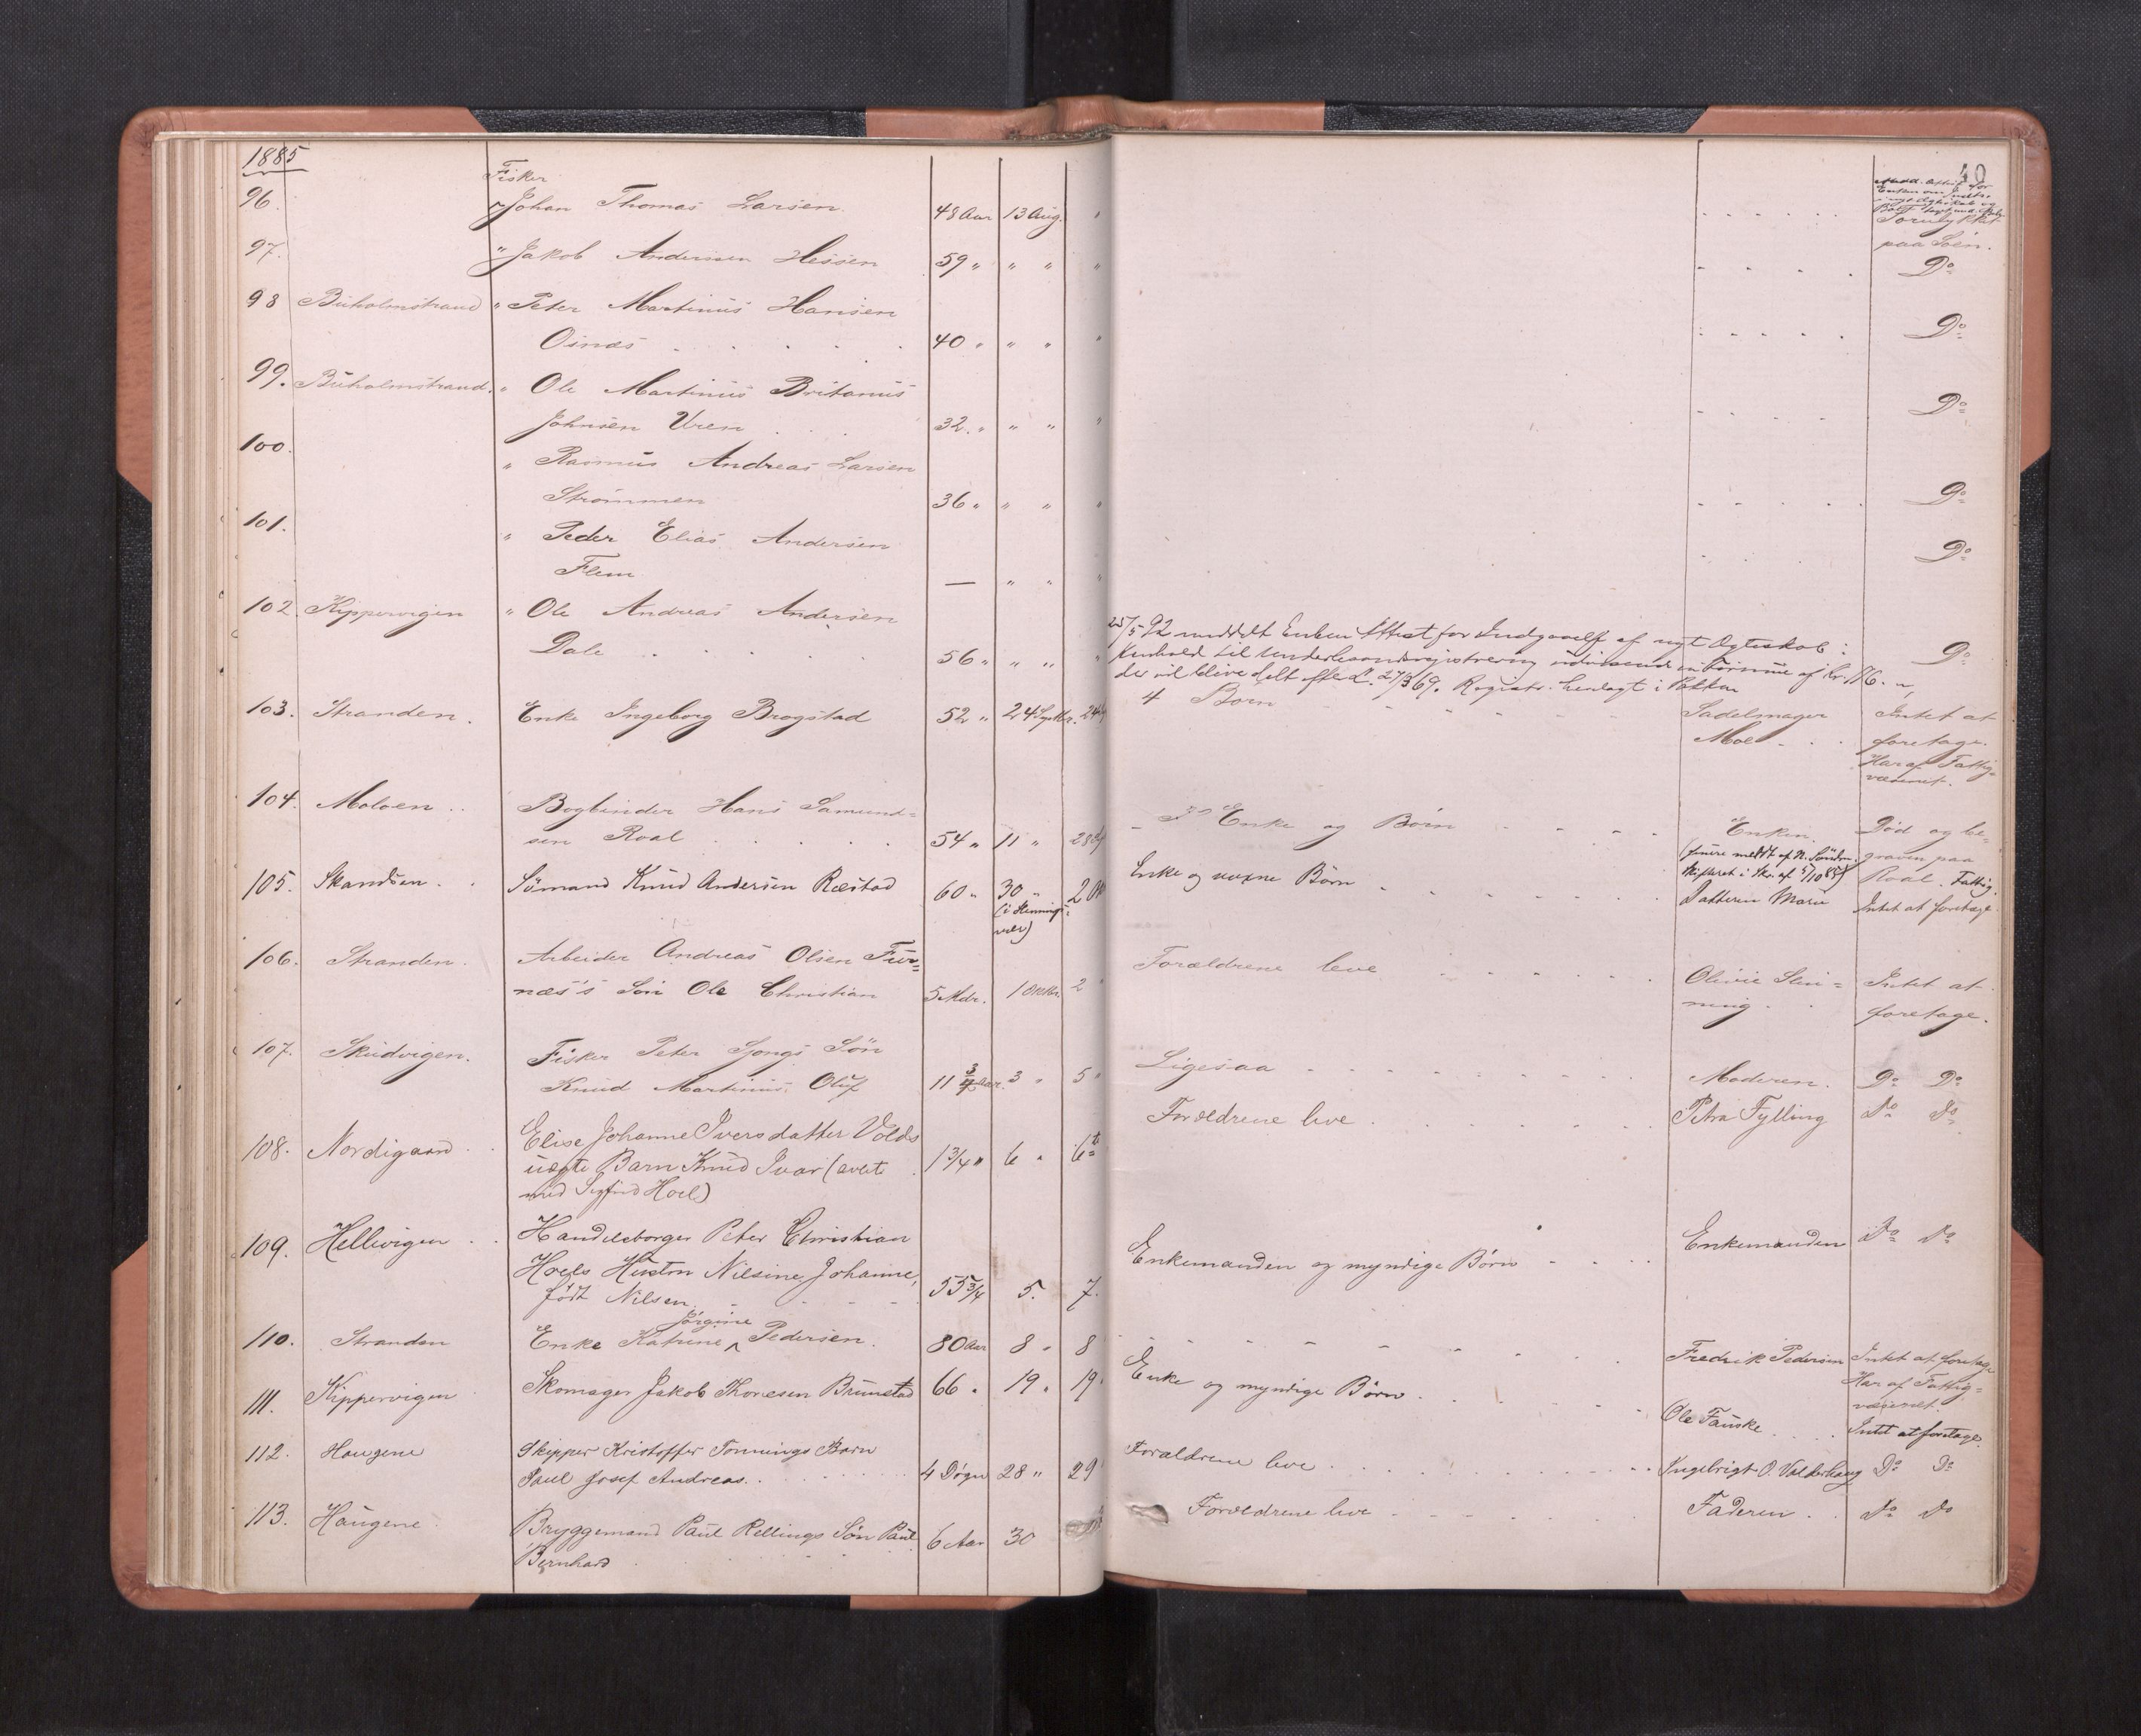 1885
40
96. Fisker
Johan Thomas Larsen 48 Aar 13 Aug. "
Forulykket
paa Søen.
97. " Jakob Andersen Hessen 59 " " " " Do
98 Buholmstrand " Peter Martinus Hansen
Osnæs 40 " " " " Do
99. Buholmstrand. " Ole Martinus Britanus
Johnsen Uren 32. " " " " Do
100. " Rasmus Andreas Larsen
Strømmen 36 " " " " Do
101. " Peder Elias Andersen
Flem — " " " Do
102. Kippervigen " Ole Andreas Andersen
Dale 56 " " " " Do
25/5 92 meddelt Enken Attest for Indgaaelse af nyt Ægteskab i
Henhold til Underhaandsregistrering udvisende en Formue af Kr. 116. -,
der vil blive delt efter L. 27/3 69. Registr. henlagt i Pakken
103. Stranden. Enke Ingeborg Brogstad 52 " 24 Septbr. 24 4 Børn Sadelmager Intet at
Moe foretage.
Har af Fattig=
væsenet.
104. Moloen Bogbinder Hans Samund=
sen Roal 54 " 11 " 28 Enke og Børn Enken. Død og be=
graven paa
Roal. Fattig.
105. Skandsen. Sömand Knud Andersen Ræstad 60 " 30 " 2 Enke og voxne Börn Datteren Marie Intet at foretage.
(i Hennings=
vær)
106. Stranden. Arbeider Andreas Olsen Fur=
næs's Søn Ole Christian 5 Mdr. 1 Oktbr. 2 " Forældrene leve Olivie Slin= Intet at
ning foretage.
107. Skudvigen. Fisker Peter Sjongs Søn
Knud Martinus Oluf 11 3/4 Aar. 3 " 5 " Ligesaa Moderen. Do Do
108. Nordigaard Elise Johanne Iversdatter Volds
uægte Barn Knud Ivar (avlet
med Sigfrid Hoel) 1 3/4 " 6 " 6te Forældrene leve Petra Fylling Do Do
109. Hellevigen Handelsborger Peter Christian
Hoels Hustru Nilsine Johanne,
født Nilsen 55 3/4 5. 7. Enkemanden og myndige Börn Enkemanden Do Do
110. Stranden Enke Katrine Jørgine Pedersen. 80 Aar 8 " 8 Fredrik Pedersen Intet at foretage
Har af Fattig=
væsenet.
111. Kippervigen Skomager Jakob Thoresen Brunstad 66 " 19 " 19 " Enke og myndige Børn. Ole Fauske Intet at foretage.
112. Haugene Skipper Kristoffer Tonnings Barn
Paul Josef Andreas. 4 Døgn 28 " 29 Forældrene leve Ingebrigt O. Valderhaug Do Do
113. Haugene Bryggemand Paul Rellings Søn Paul
Bernhard 6 Aar 30 Forældrene leve Faderen Do Do